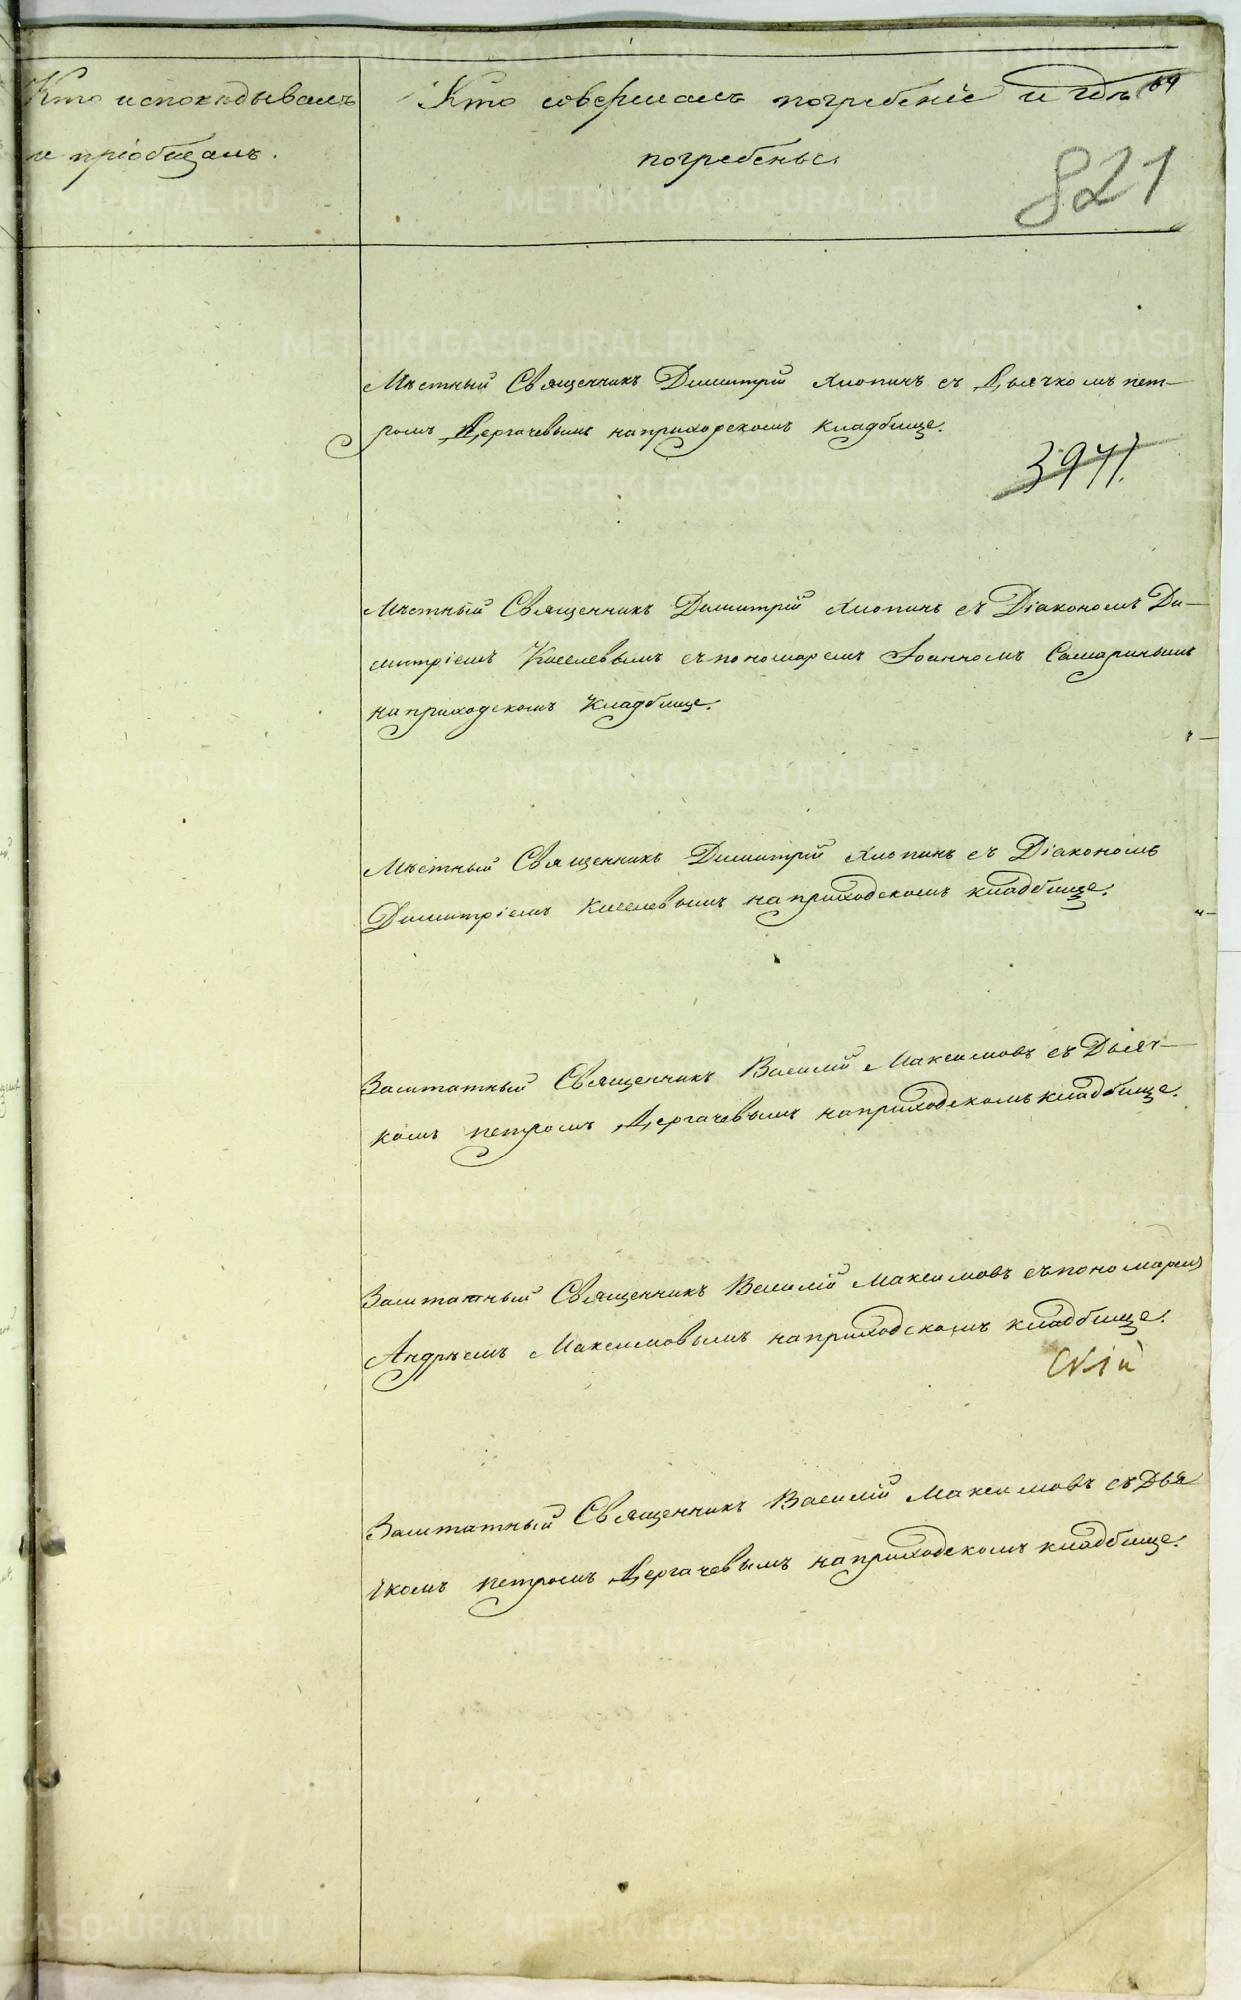 Кто исповѣдывалъ
и пріобщалъ.
Кто совершалъ погребеніе и гдѣ
погребены.
821
Мѣстный Священникъ Димитрій Хлопинъ съ Дьячкомъ пет–
ромъ Дергачевымъ на приходскомъ кладбище.
3941.
Мѣстный Священникъ Димитрій Хлопинъ съ Діакономъ Ди–
митріемъ Киселевымъ съ пономаремъ Іоанномъ Самаринымъ
на приходскомъ Кладбище.
Мѣстный Священникъ Димитрій Хлопинъ съ Діакономъ
Димитріемъ Киселевымъ на приходскомъ кладбище.
Заштатный Священникъ Василій Максимовъ съ Дьяч–
комъ петромъ Дергачевымъ на приходскомъ кладбище.
Заштатный Священникъ Василій Максимовъ съ пономаремъ
Андрѣемъ Максимовымъ на приходскомъ кладбище.
Заштатный Священникъ Василій Максимовъ съ Дья
чкомъ петромъ Дергачевымъ на приходскомъ кладбище.
METRIKI.GASO-URAL.RU